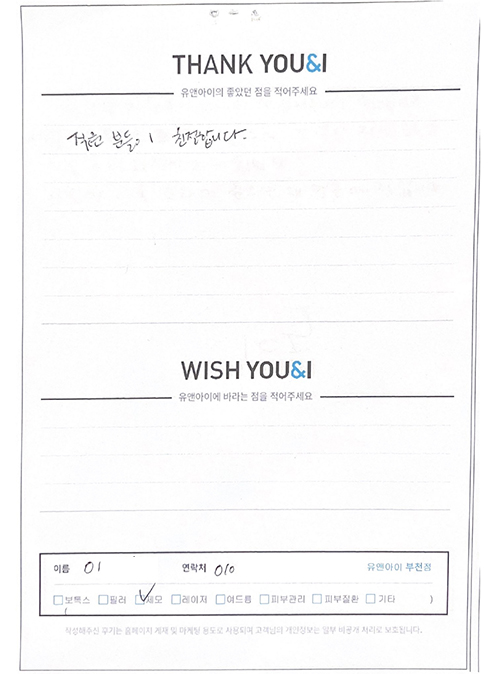 THANK YOU&I
유앤아이의 좋았던 점을 적어주세요
직원 분들이 친절합니다.
WISH YOU&I
유앤아이에 바라는 점을 적어주세요
이름 이 연락처 010 유앤아이 부천점
보톡스 필러 제모 레이저 여드름 피부관리 피부질환 기타 )
(
작성해주신 후기는 홈페이지 게재 및 마케팅 용도로 사용되며 고객님의 개인정보는 일부 비공개 처리로 보호됩니다.